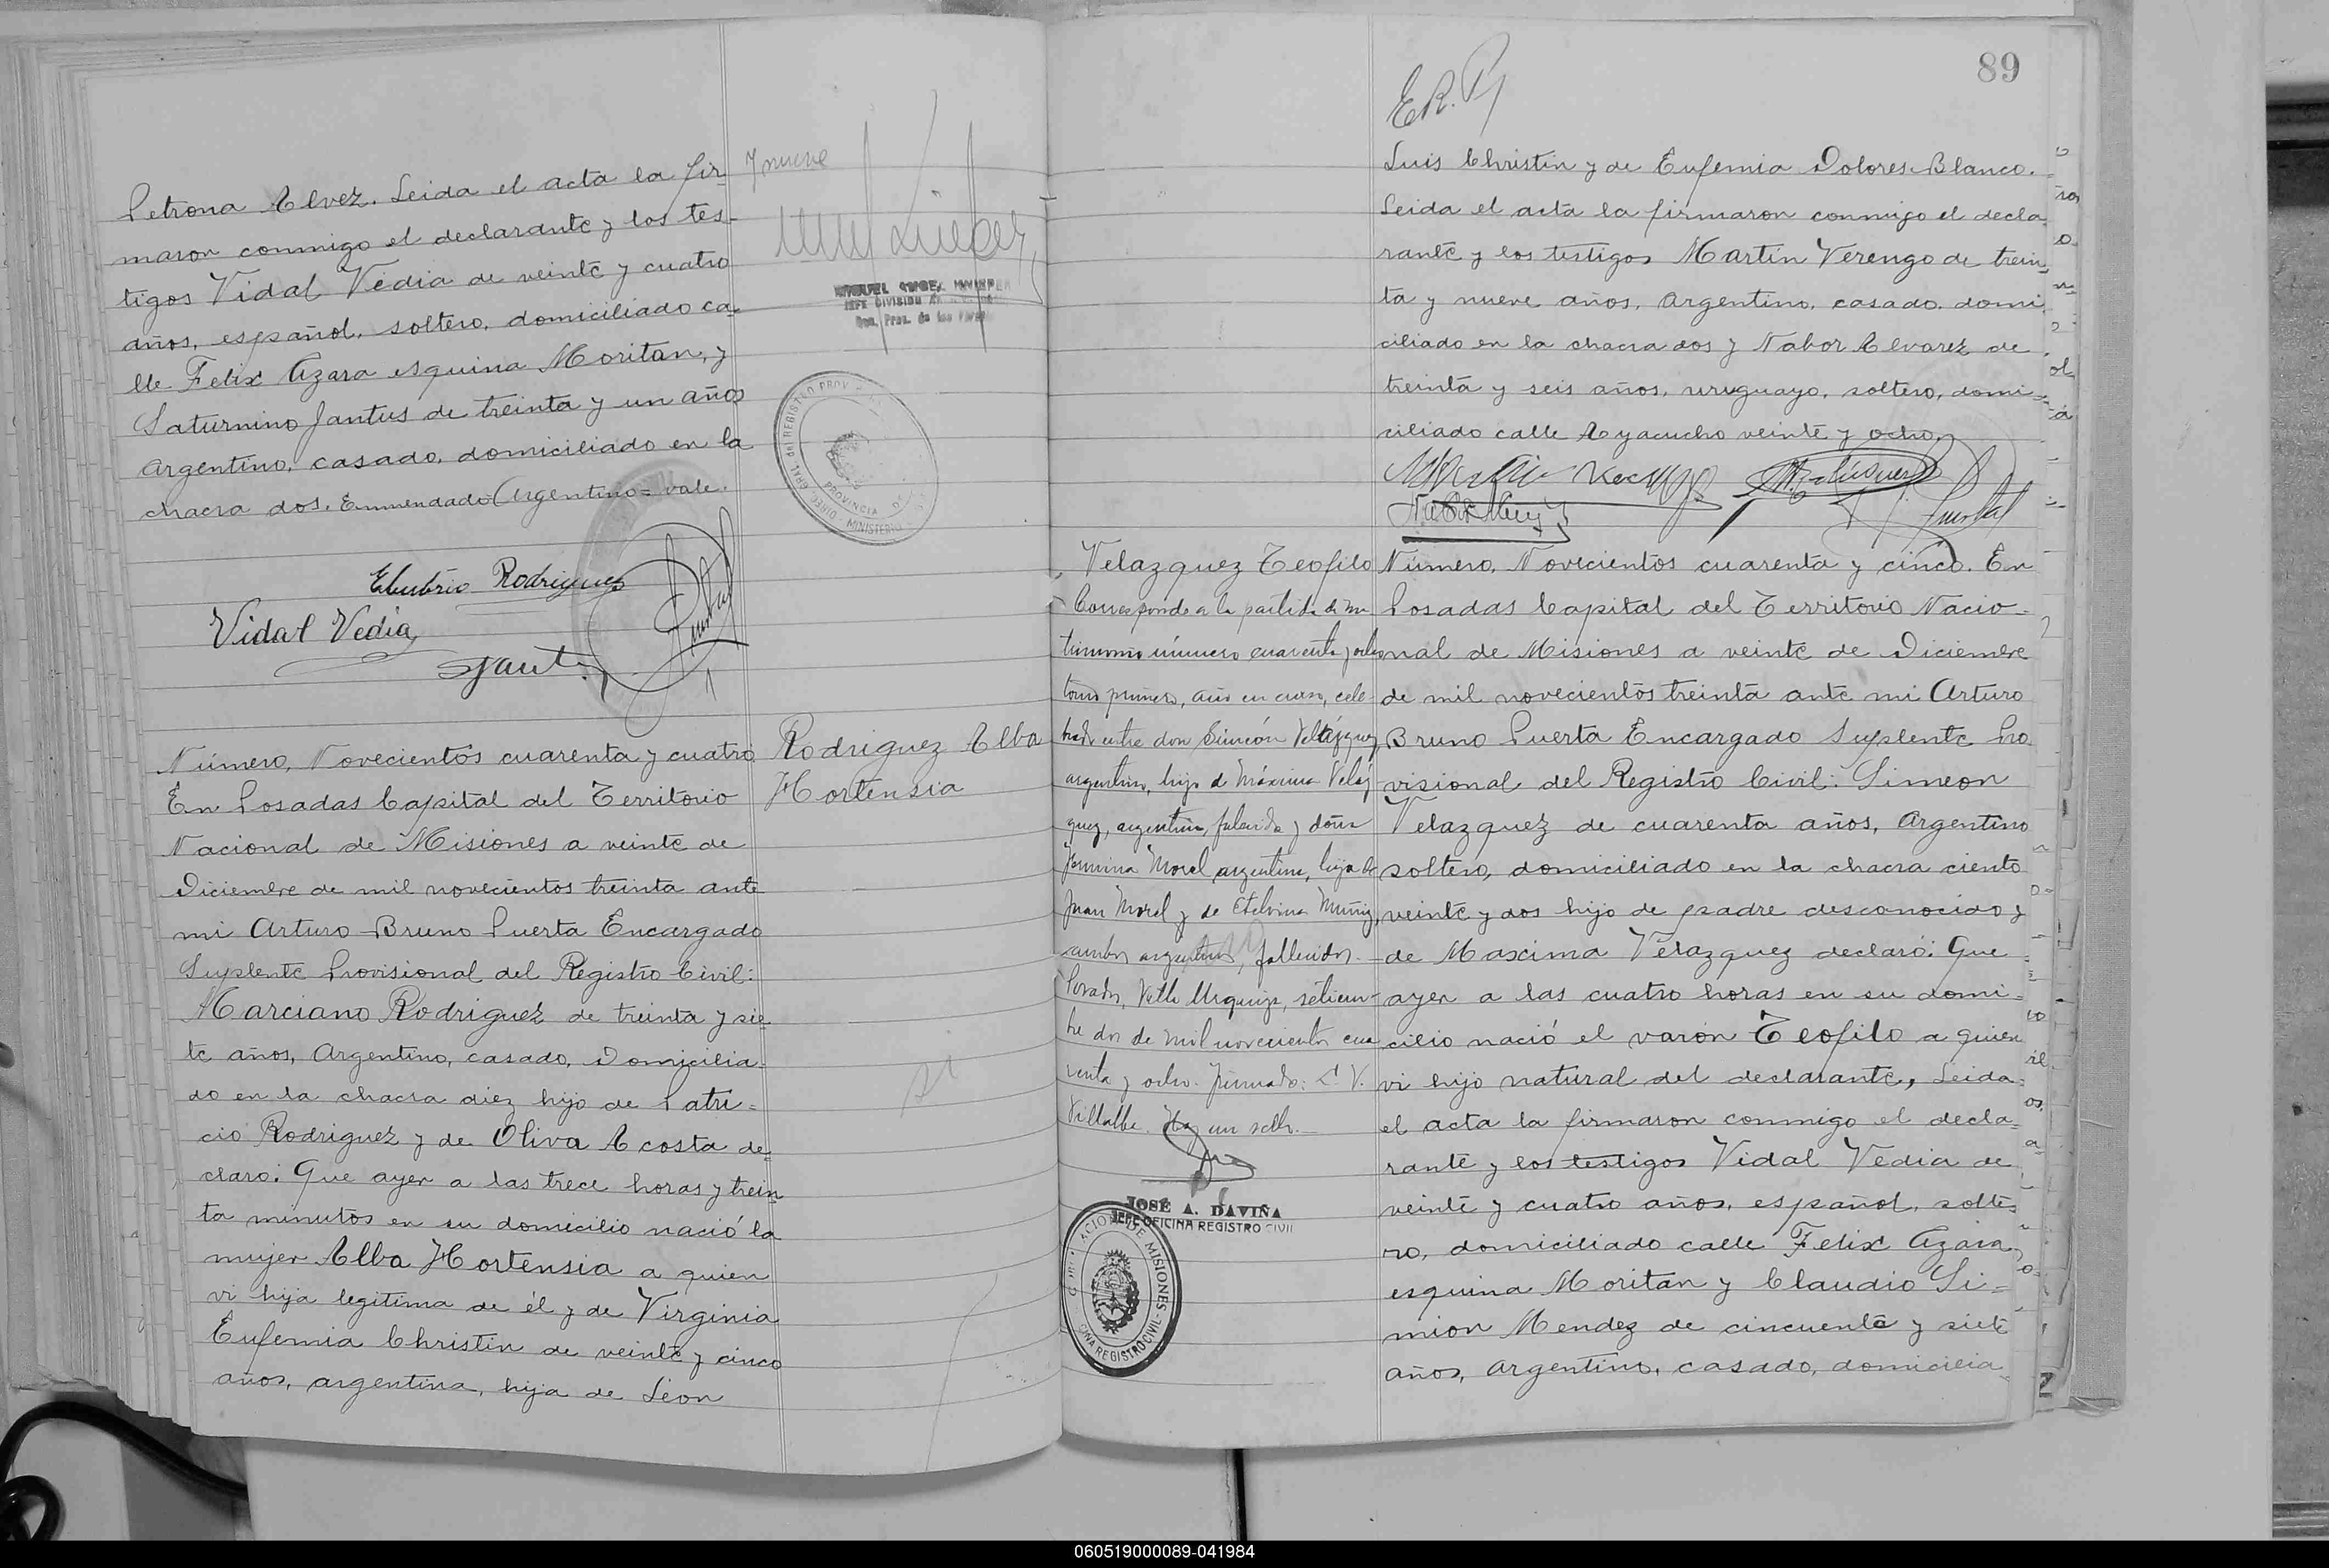 Petrona Alvez. Leida el acta la fir-
maron conmigo el declarante y los tes-
tigos Vidal Vedia de veinte y cuatro
años, español, soltero, domiciliado ca-
lle Felix Azara esquina Moritan, y
Saturnino Jantus de treinta y un años
argentino, casado, domiciliado en la
chacra dos. Enmendado Argentino = vale.
Rodriguez
Vidal Vedia
Número, Novecientos cuarenta y cuatro
En Posadas Capital del Territorio
Nacional de Misiones a veinte de
Diciembre de mil novecientos treinta ante
mi Arturo Bruno Puerta Encargado
Suplente Provisional del Registro Civil:
Marciano Rodriguez de treinta y sie
te años, Argentino, casado, Domicilia-
do en la chacra diez hijo de Patri=
cio Rodriguez y de Oliva Acosta de-
claro: Que ayer a las trece horas y trein
ta minutos en su domicilio nació la
mujer Alba Hortensia a quien
vi hija legitima de él y de Virginia
Eufemia Christin de veinte y cinco
años, argentina, hija de Léon
y nueve
DIREC. GRAL del REGISTRO PROV
PROVINCIA DE
MINISTERIO
Rodriguez Alba
Hortensia
89
E.R.
Luis Christin y de Eufemia Dolores Blanco.
Leida el acta la firmaron conmigo el decla
rante y los testigos Martin Verengo de trein
ta y nueve años, argentino, casado, domi
ciliado en la chacra dos y Nabor Alvarez de
treinta y seis años, uruguayo, soltero, domi-
ciliado calle Ayacucho veinte y ocho.
Velazquez Teofilo
Corresponde a la partida de ma
trimonio número cuarenta y ocho
tomo primero, año en curso, cele-
brado entre don Simeón Velázquez
argentino, hijo de Máxima Veláz
quez, argentina, fallecida y doña
Morel argentina, hija de
Juan Morel y de Etelvina Muñiz,
ambos argentinos, fallecidos.
Posadas, Villa Urquiza, setiem-
bre dos de mil novecientos cua
renta y ocho. Firmado: L. V.
Villalba. Hay un sello.
JOSÉ A. DAVIÑA
JEFE OFICINA REGISTRO CIVIL
DE MISIONES
REGISTRO CIVIL
Número, Novecientos cuarenta y cinco. En
Posadas Capital del Territorio Nacio-
nal de Misiones a veinte de Diciembre
de mil novecientos treinta ante mi Arturo
Bruno Puerta Encargado Suplente Pro
visional del Registro Civil: Simeon
Velazquez de cuarenta años, Argentino
soltero, domiciliado en la chacra ciento
veinte y dos hijo de padre desconocido y
de Maxima Velazquez declaró: Que
ayer a las cuatro horas en su domi=
cilio nació el varón Teofilo a quien
vi hijo natural del declarante, Leida
el acta la firmaron conmigo el decla=
rante y los testigos Vidal Vedia de
veinte y cuatro años, español, solte=
ro, domiciliado calle Felix Azara
esquina Moritan y Claudio Si=
mion Mendez de cincuenta y siete
años, argentino, casado, domicilia
060519000089-041984